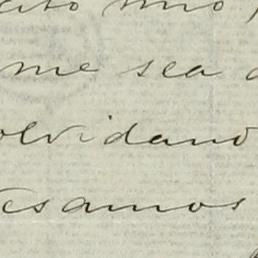 mio
me sea
olvidand
esamos